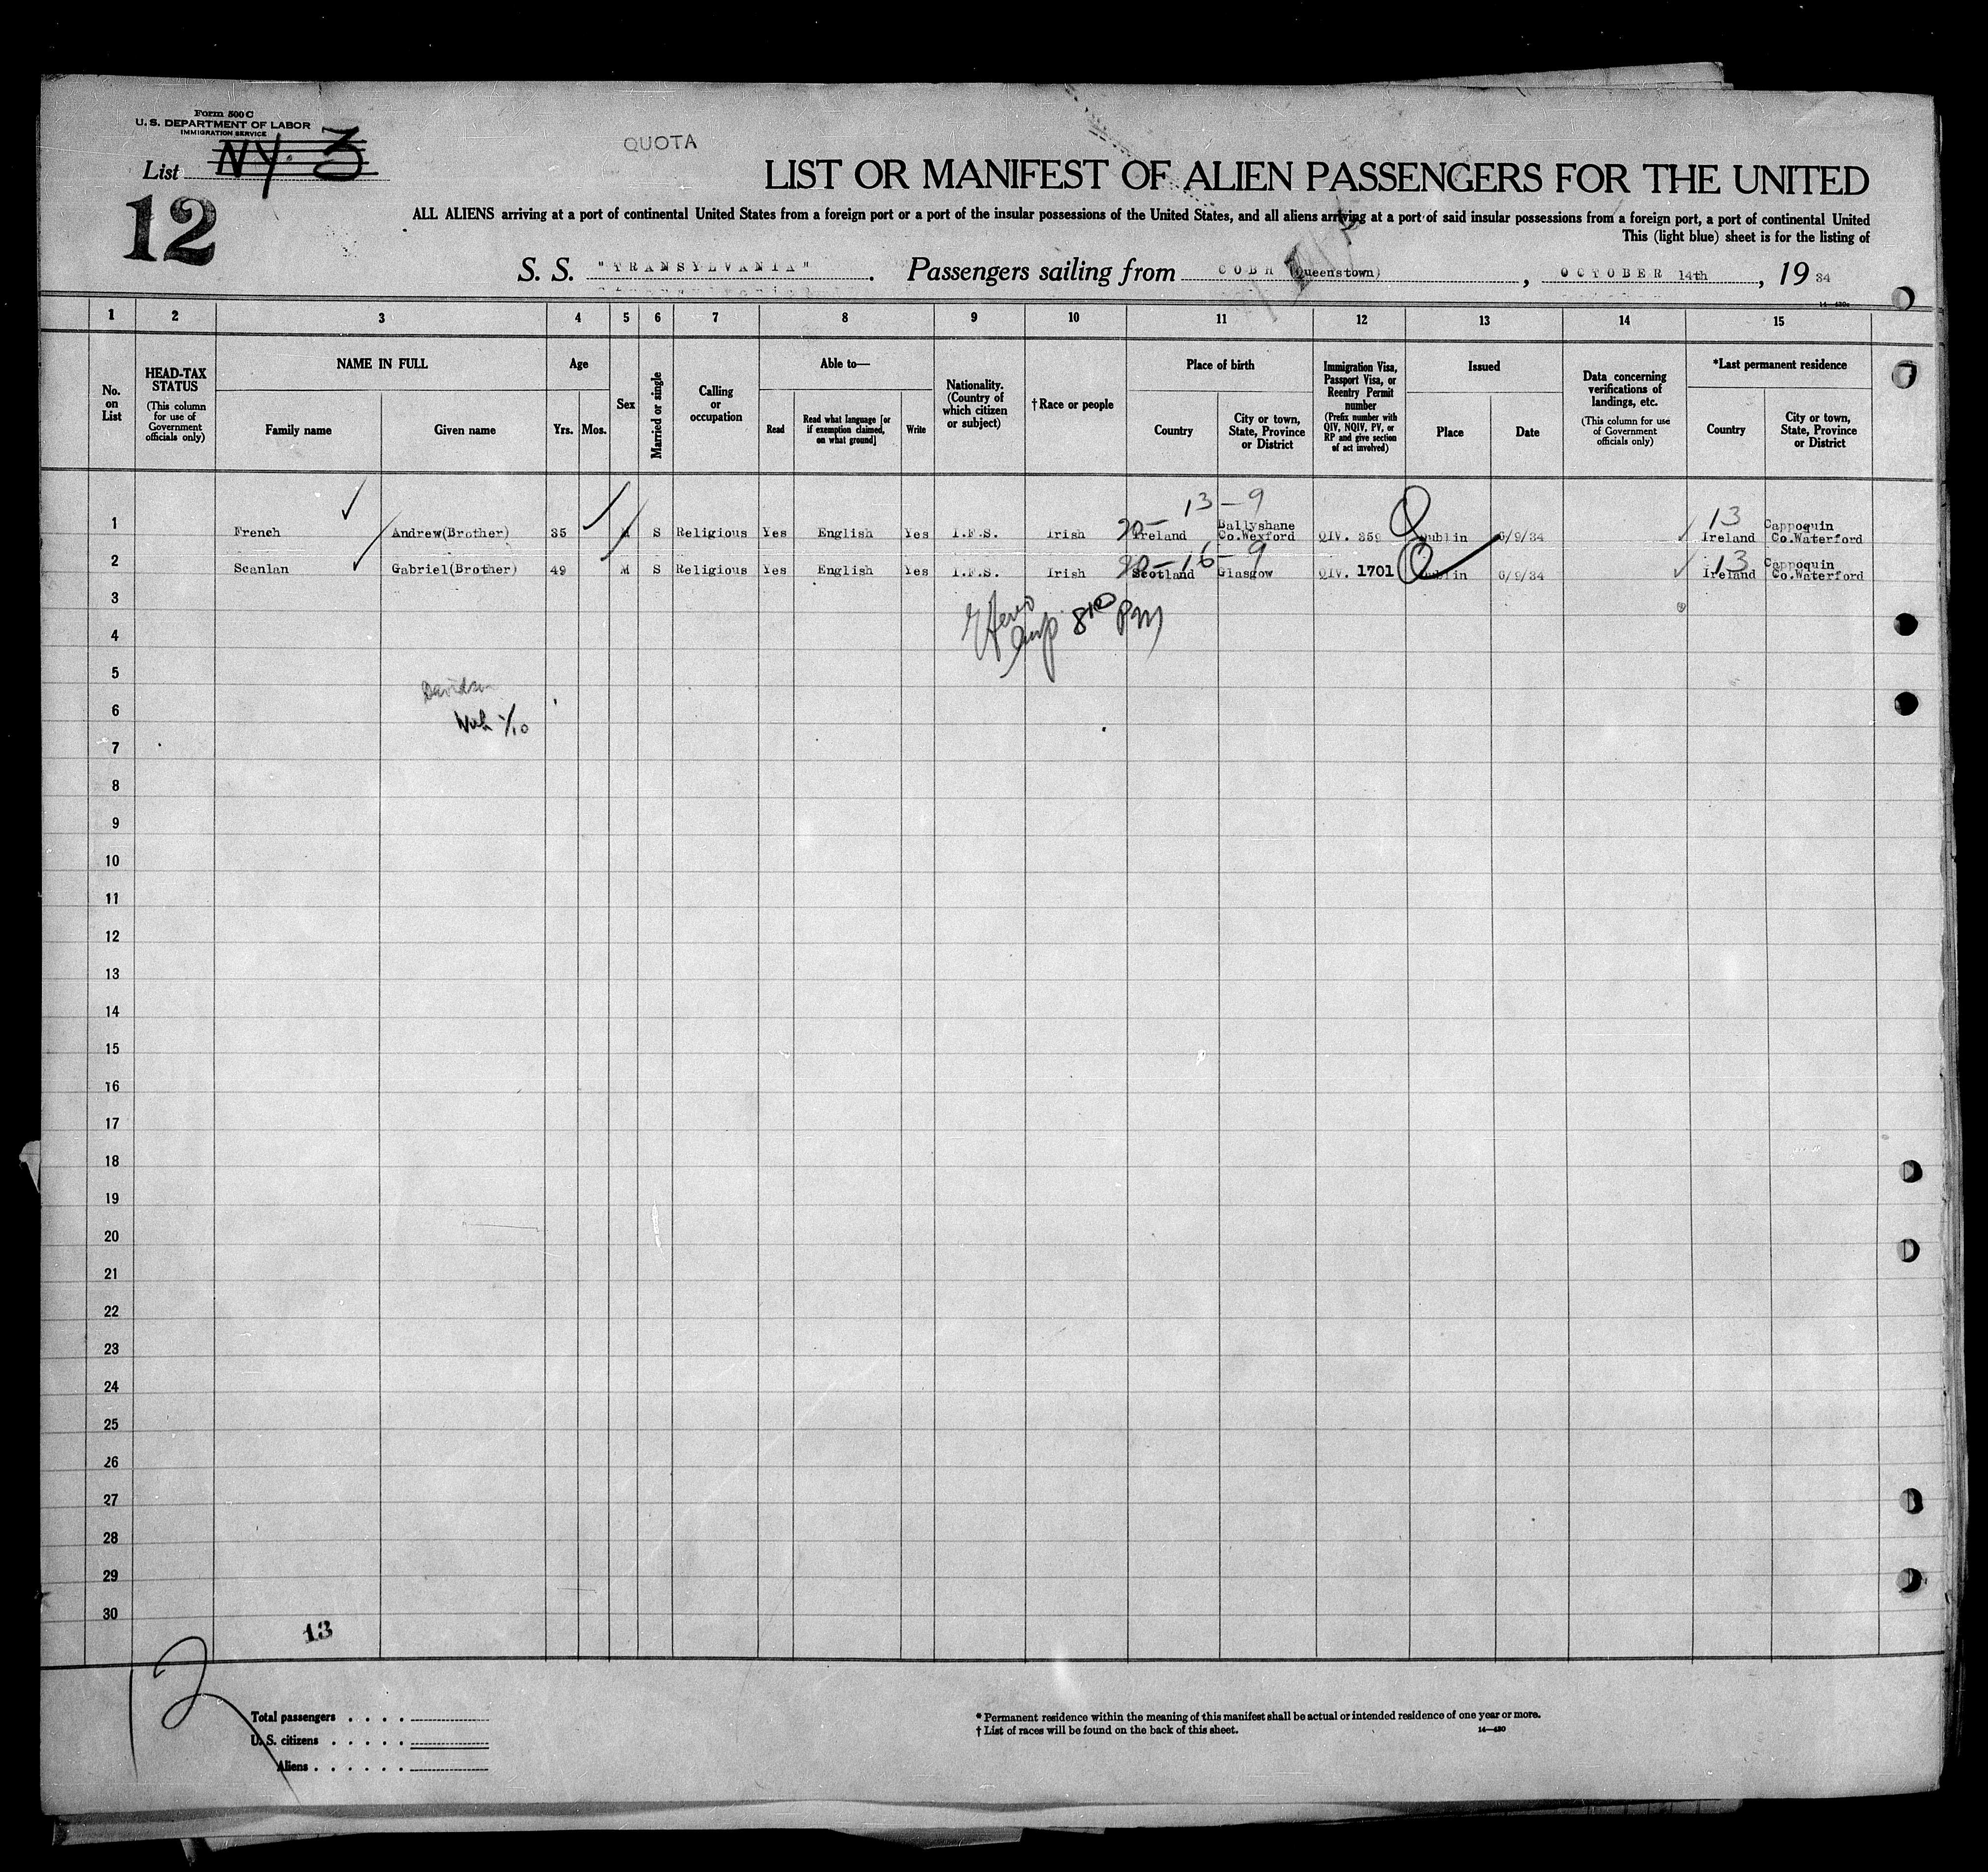 Form 500 C
U. S. DEPARTMENT OF LABOR
IMMIGRATION SERVICE
List NY. 3
QUOTA
12
LIST OR MANIFEST OF ALIEN PASSENGERS FOR THE UNITED
ALL ALIENS arriving at a port of continental United States from a foreign port or a port of the insular possessions of the United States, and all aliens arriving at a port of said insular possessions from a foreign port, a port of continental United
This (light blue) sheet is for the listing of
S. S. "TRANSYLVANIA". Passengers sailing from COBH (Queenstown), OCTOBER 14th, 1934
14—430
1 2 3 4 5 6 7 8 9 10 11 12 13 14 15
No. on List
HEAD-TAX STATUS
(This column for use of Government officials only)
NAME IN FULL
Family name
Given name
Age
Yrs. Mos.
Sex
Married or single
Calling or occupation
Able to—
Read
Read what language [or if exemption claimed, on what ground]
Write
Nationality. (Country of which citizen or subject)
†Race or people
Place of birth
Country
City or town, State, Province or District
Immigration Visa, Passport Visa, or Reentry Permit number
(Prefix number with QIV, NQIV, PV, or RP and give section of act involved)
Issued
Place
Date
Data concerning verifications of landings, etc.
(This column for use of Government officials only)
*Last permanent residence
Country
City or town, State, Province or District
13 – 9
1 French Andrew(Brother) 35 M S Religious Yes English Yes I.F.S. Irish Ireland Ballyshane Co.Wexford QIV. 359 Dublin 6/9/34 13 Ireland Cappoquin Co.Waterford
20 – 16 – 9
2 Scanlan Gabriel(Brother) 49 M S Religious Yes English Yes I.F.S. Irish Scotland Glasgow QIV. 1701 Dublin 6/9/34 13 Ireland Cappoquin Co.Waterford
3
8 10 PM
4
5
Davidson
6
7
8
9
10
11
12
13
14
15
16
17
18
19
20
21
22
23
24
25
26
27
28
29
30
13
2
Total passengers . . . .
U. S. citizens . . . . .
Aliens . . . . . .
* Permanent residence within the meaning of this manifest shall be actual or intended residence of one year or more.
† List of races will be found on the back of this sheet.
14—430